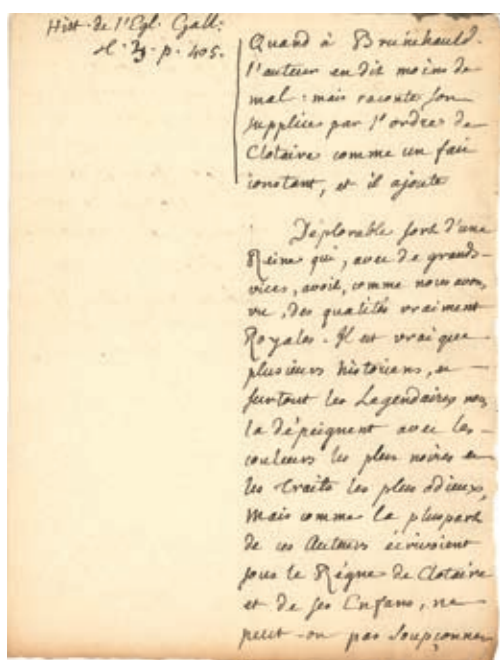 Hist. de l'Egl. Gall:
t. 3. p. 405.
Quand à Brunehauld.
l'auteur en dit moins de
mal: mais raconte son
supplice par l'ordre de
Clotaire comme un fait
constant, et il ajoute
Déplorable sort d'une
Reine qui, avec de grands
vices, avoit, comme nous avons
vu, des qualités vraiment
Royales. Il est vrai que
plusieurs historiens, et
surtout les Legendaires nous
la dépeignent avec les
couleurs les plus noires et
les traits les plus odieux,
Mais comme la pluspart
de ces Auteurs écrivoient
sous le Régne de Clotaire
et de ses Enfans, ne
peut-on pas soupçonner